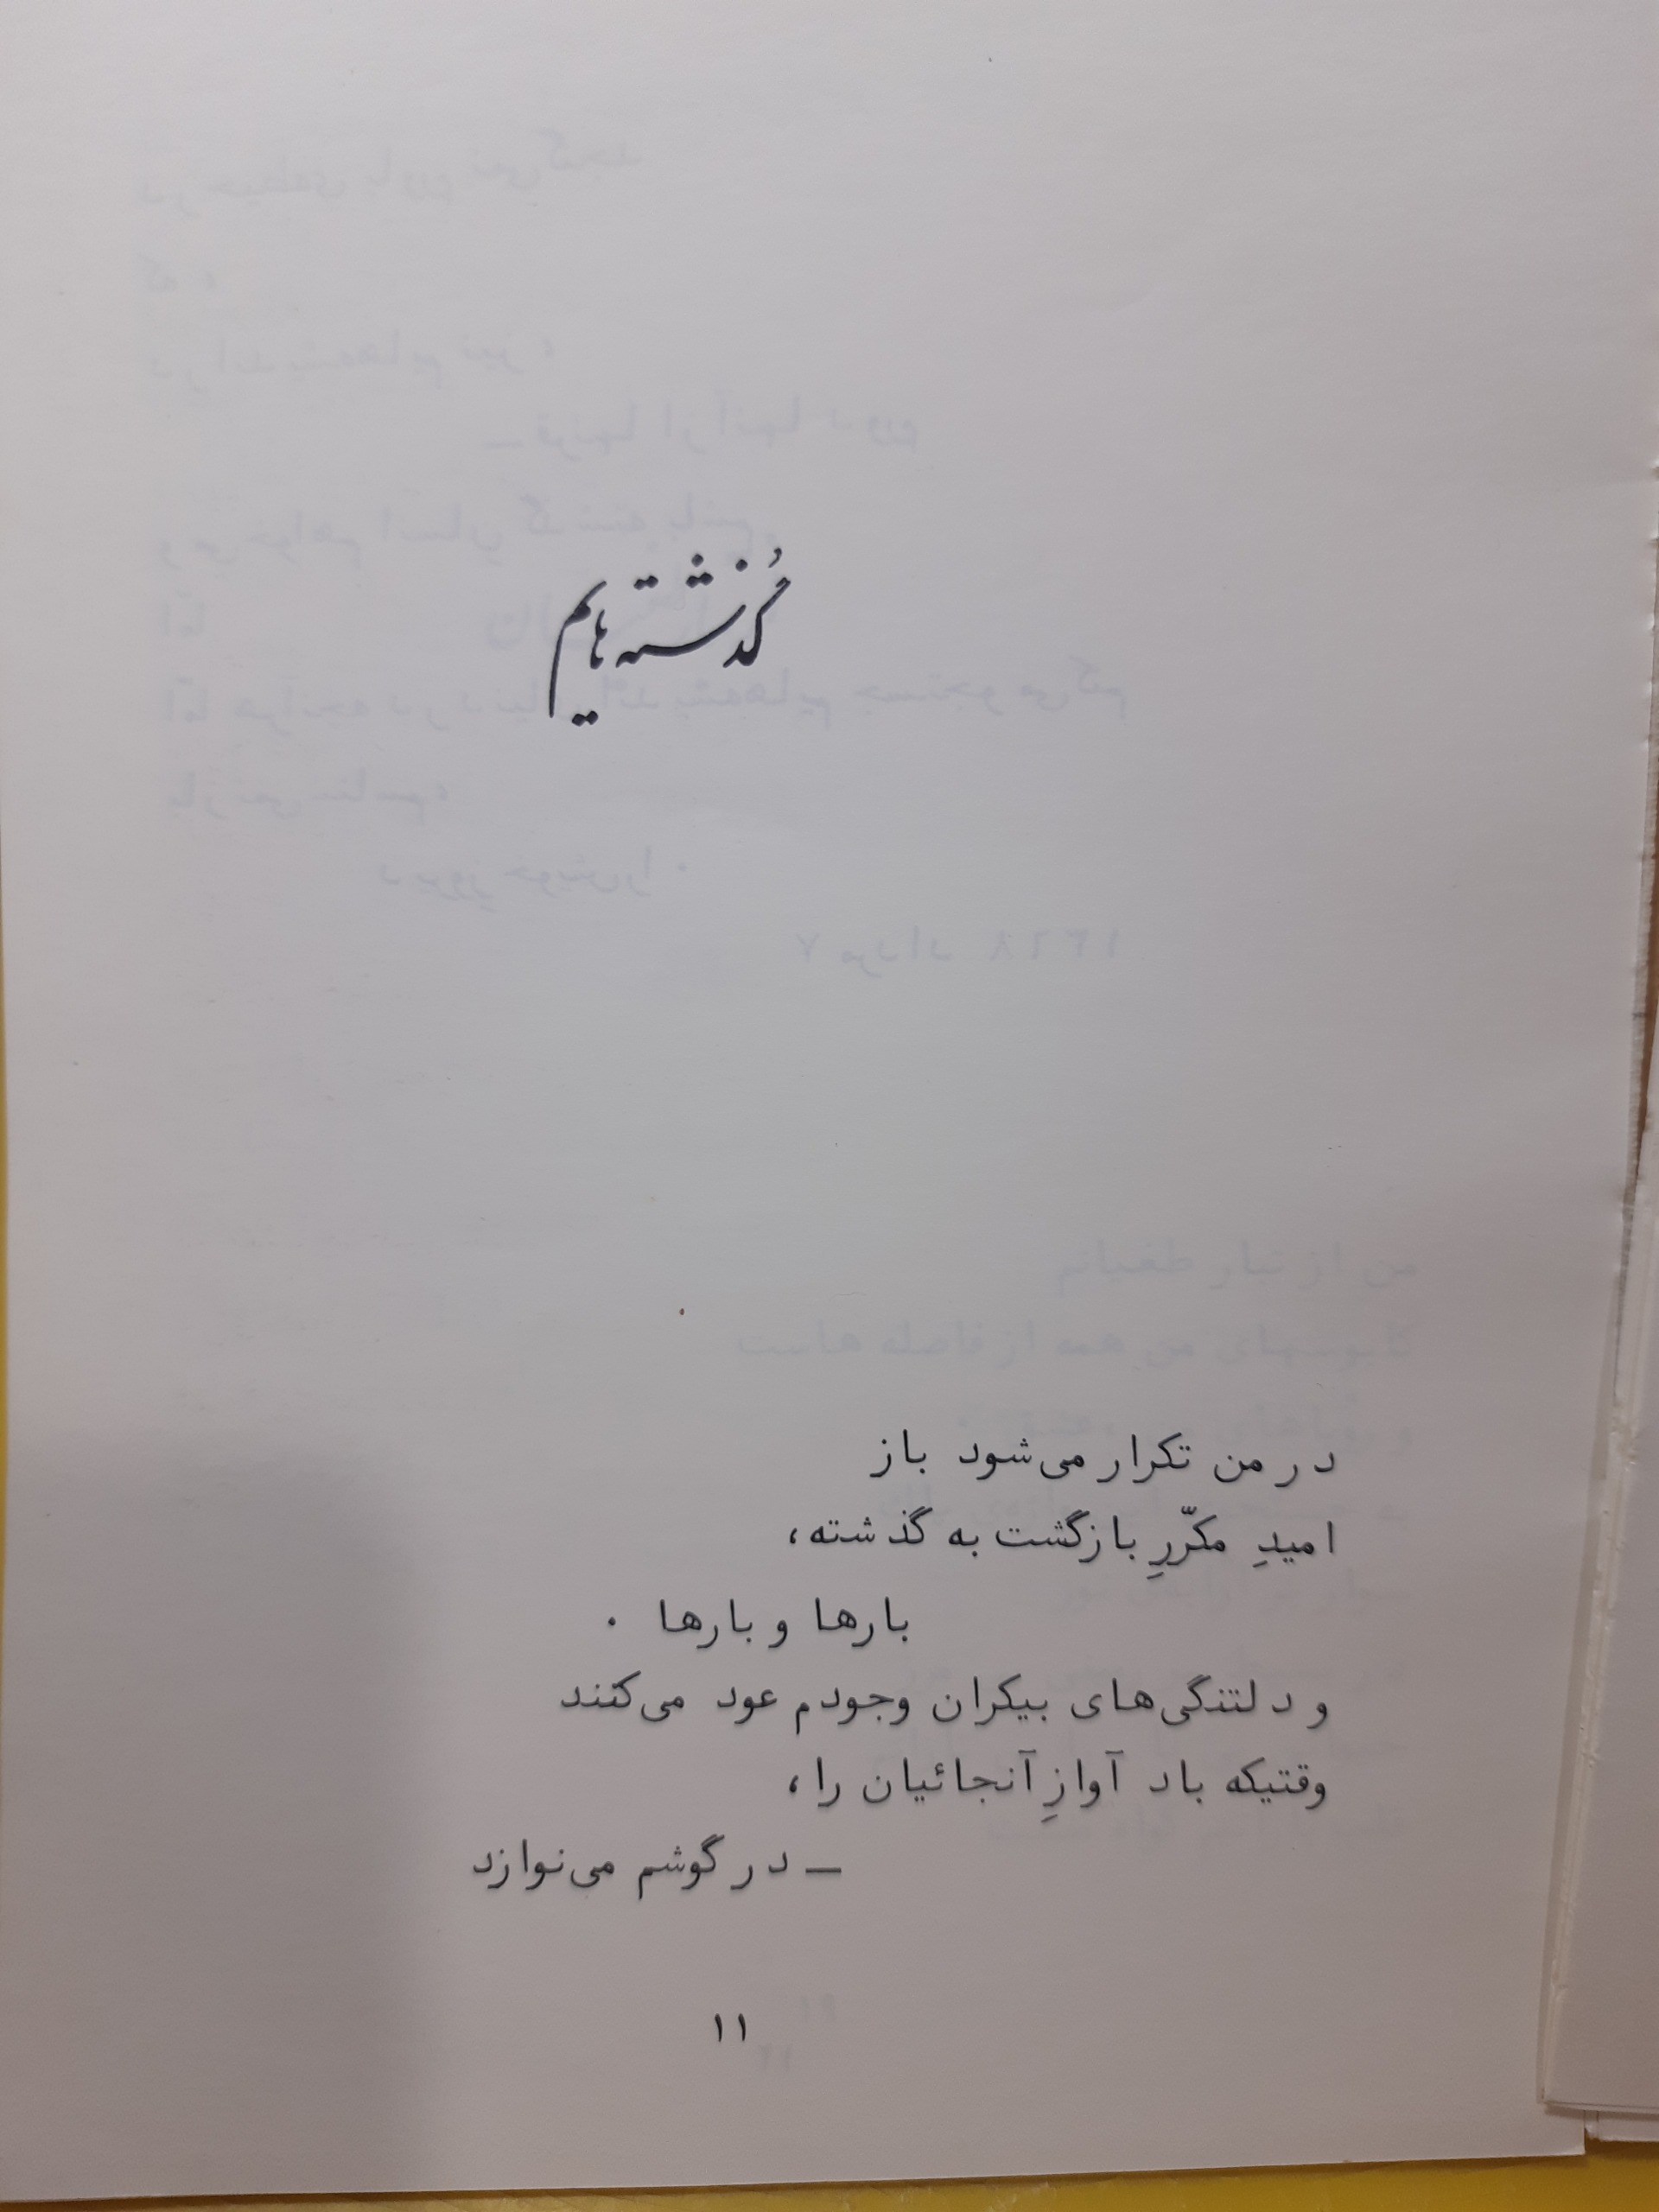 گُذشته‌هایم
در من تکرار می‌شود باز
امیدِ مکرّرِ بازگشت به گذشته،
بارها و بارها .
و دلتنگی‌های بیکران وجودم عود می‌کنند
وقتیکه باد آوازِ آنجائیان را،
— در گوشم می‌نوازد
۱۱